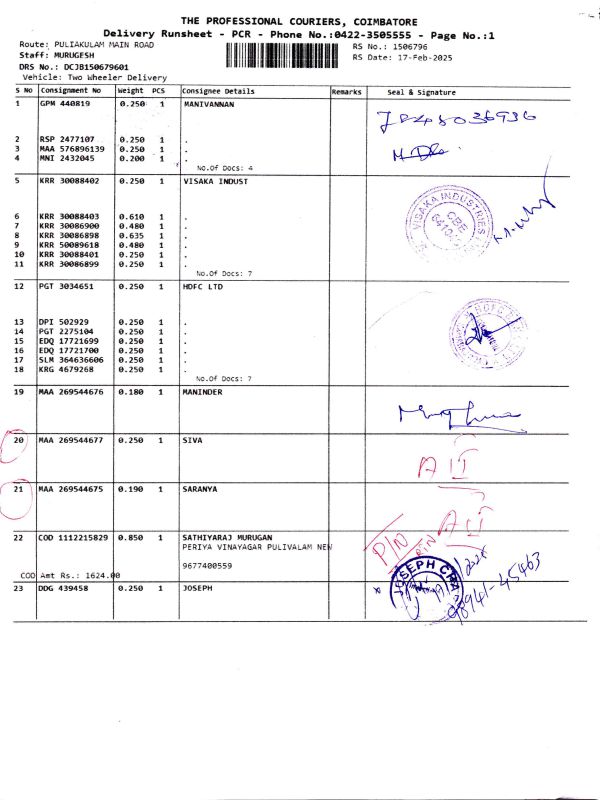 THE PROFESSIONAL COURIERS, COIMBATORE
Delivery Runsheet - PCR - Phone No.:0422-3505555 - Page No.:1
Route: PULIAKULAM MAIN ROAD
RS No.: 1506796
Staff: MURUGESH
RS Date: 17-Feb-2025
DRS No.: DCJB150679601
Vehicle: Two Wheeler Delivery
S No Consignment No Weight PCS Consignee Details Remarks Seal & Signature
1 GPM 440819 0.250 1 MANIVANNAN
2 RSP 2477107 0.250 1 .
3 MAA 576896139 0.250 1 .
4 MNI 2432045 0.200 1 .
No.Of Docs: 4
5 KRR 30088402 0.250 1 VISAKA INDUST
VISAKA INDUSTRIES
CBE
6 KRR 30088403 0.610 1 .
7 KRR 30086900 0.480 1 .
8 KRR 30086898 0.635 1 .
9 KRR 50089618 0.480 1 .
10 KRR 30088401 0.250 1 .
11 KRR 30086899 0.250 1 .
No.Of Docs: 7
12 PGT 3034651 0.250 1 HDFC LTD
13 DPI 502929 0.250 1 .
14 PGT 2275104 0.250 1 .
15 EDQ 17721699 0.250 1 .
16 EDQ 17721700 0.250 1 .
17 SLM 364636606 0.250 1 .
18 KRG 4679268 0.250 1 .
No.Of Docs: 7
19 MAA 269544676 0.180 1 MANINDER
20 MAA 269544677 0.250 1 SIVA
21 MAA 269544675 0.190 1 SARANYA
22 COD 1112215829 0.850 1 SATHIYARAJ MURUGAN
PERIYA VINAYAGAR PULIVALAM NEW
9677400559
COD Amt Rs.: 1624.00
P/N
23 DDG 439458 0.250 1 JOSEPH
JOSEPH
98941-45463